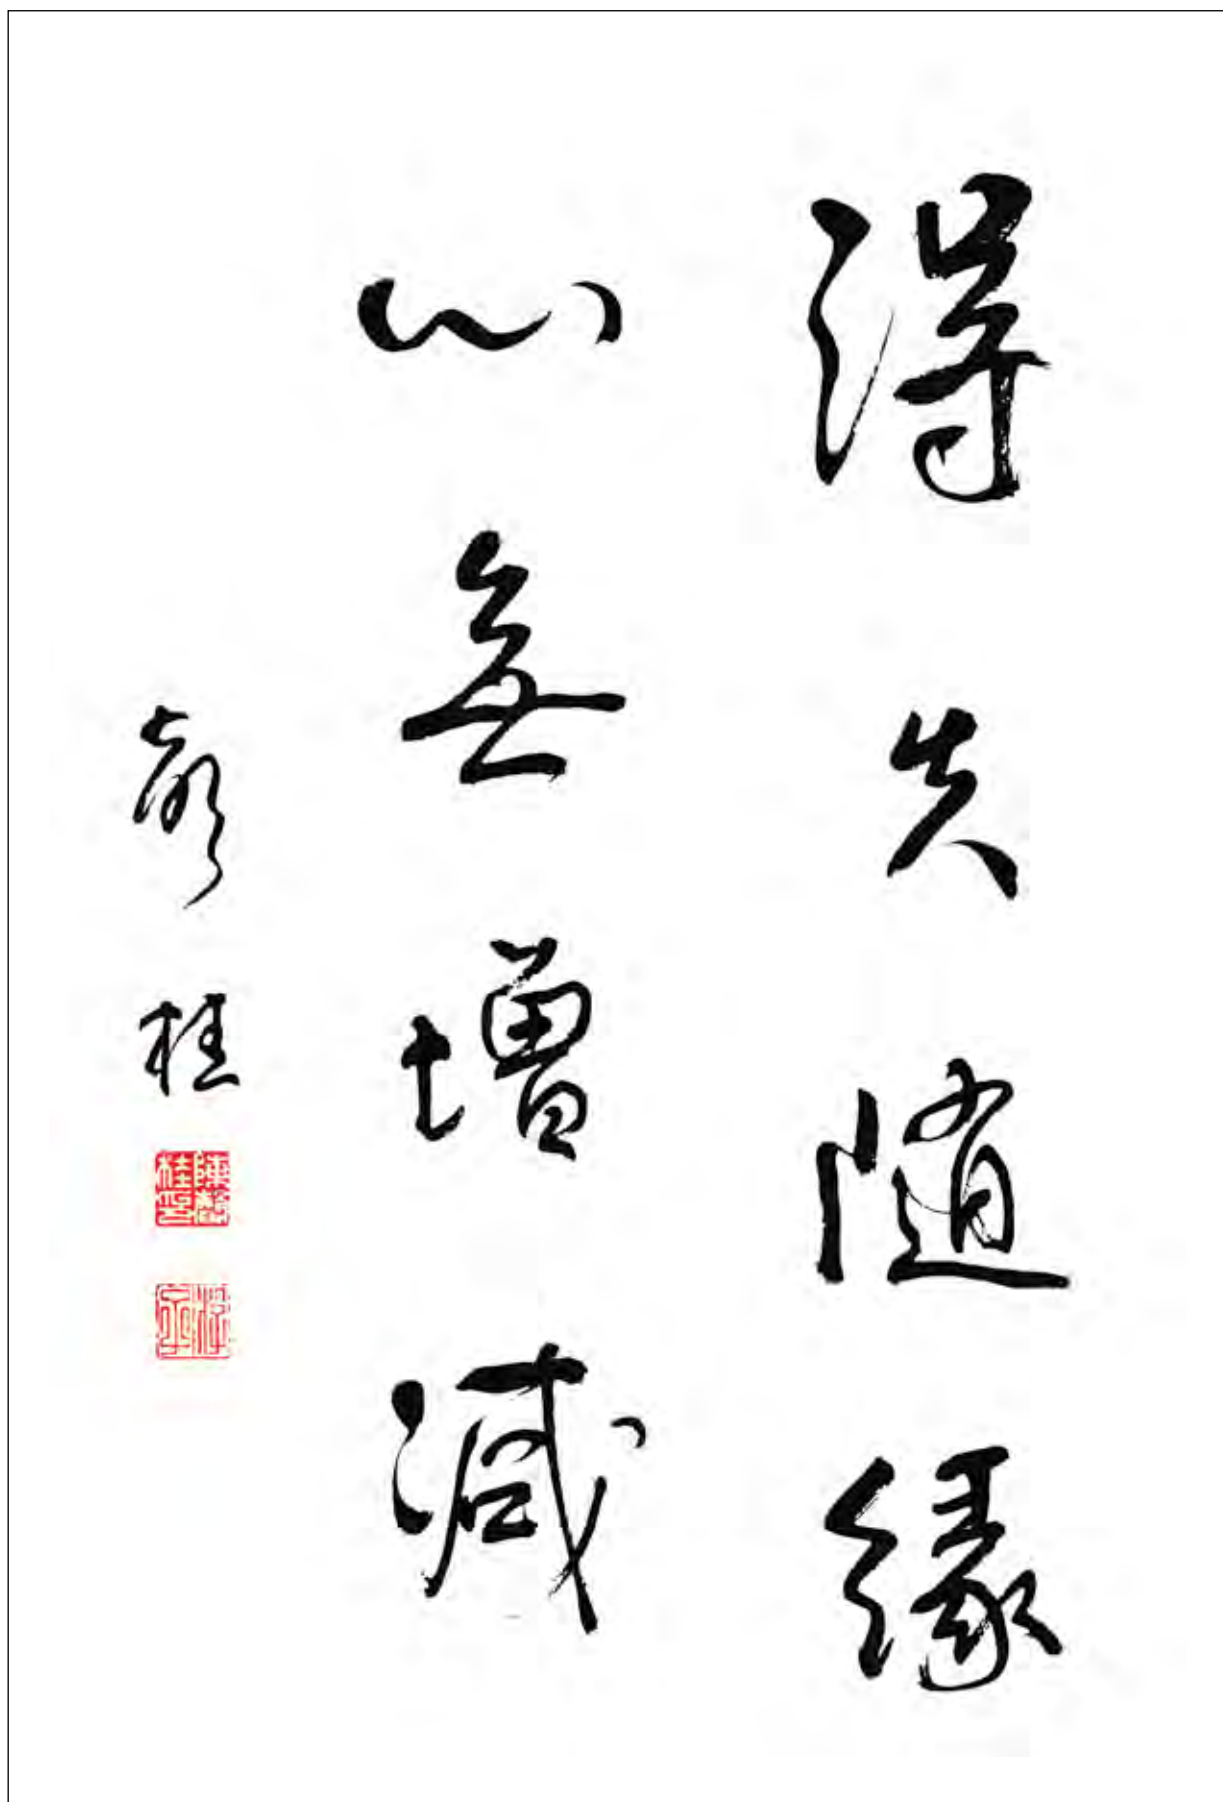 得失隨緣
心無增減
馨桂